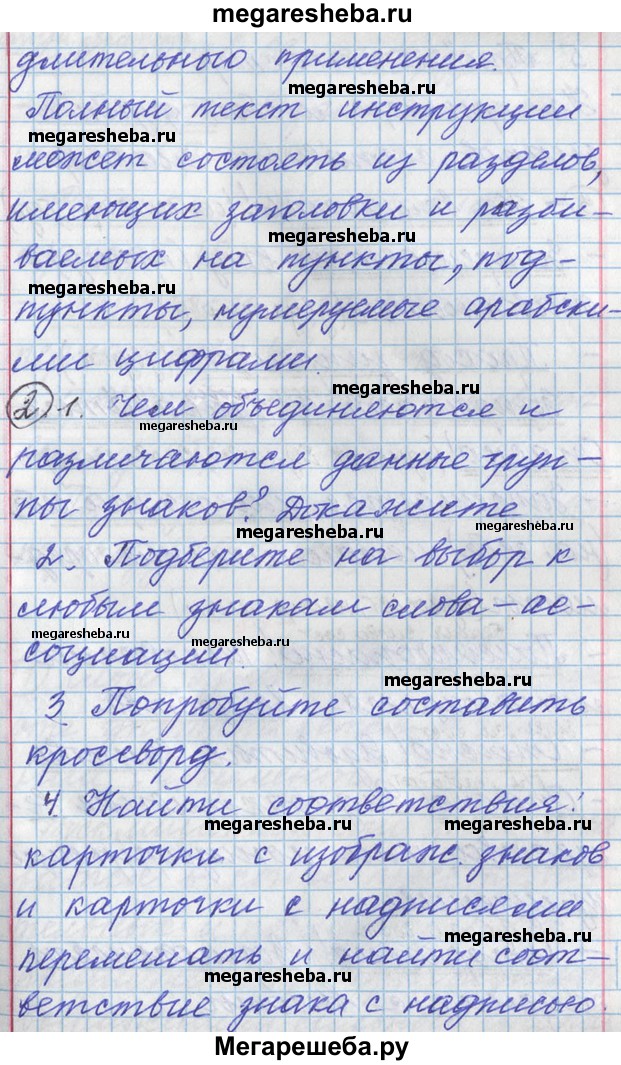 megaresheba.ru
длительного применения.
megaresheba.ru
Полный текст инструкции
megaresheba.ru
может состоять из разделов,
имеющих заголовки и разби-
megaresheba.ru
ваемых на пункты, под-
megaresheba.ru
пункты, нумеруемые арабски-
ми цифрами
megaresheba.ru
2 1. Чем объединяются и
megaresheba.ru
различаются данные груп-
пы знаков? Докажите
megaresheba.ru
2. Подберите на выбор к
любым знакам слова-ас-
megaresheba.ru megaresheba.ru
социации.
megaresheba.ru
3 Попробуйте составить
кроссворд.
4 Найти соответствия:
megaresheba.ru megaresheba.ru
карточки с изображ. знаков
и карточки с надписями
megaresheba.ru
перемешать и найти соот-
megaresheba.ru
ветствие знака с надписью.
Мегарешеба.ру